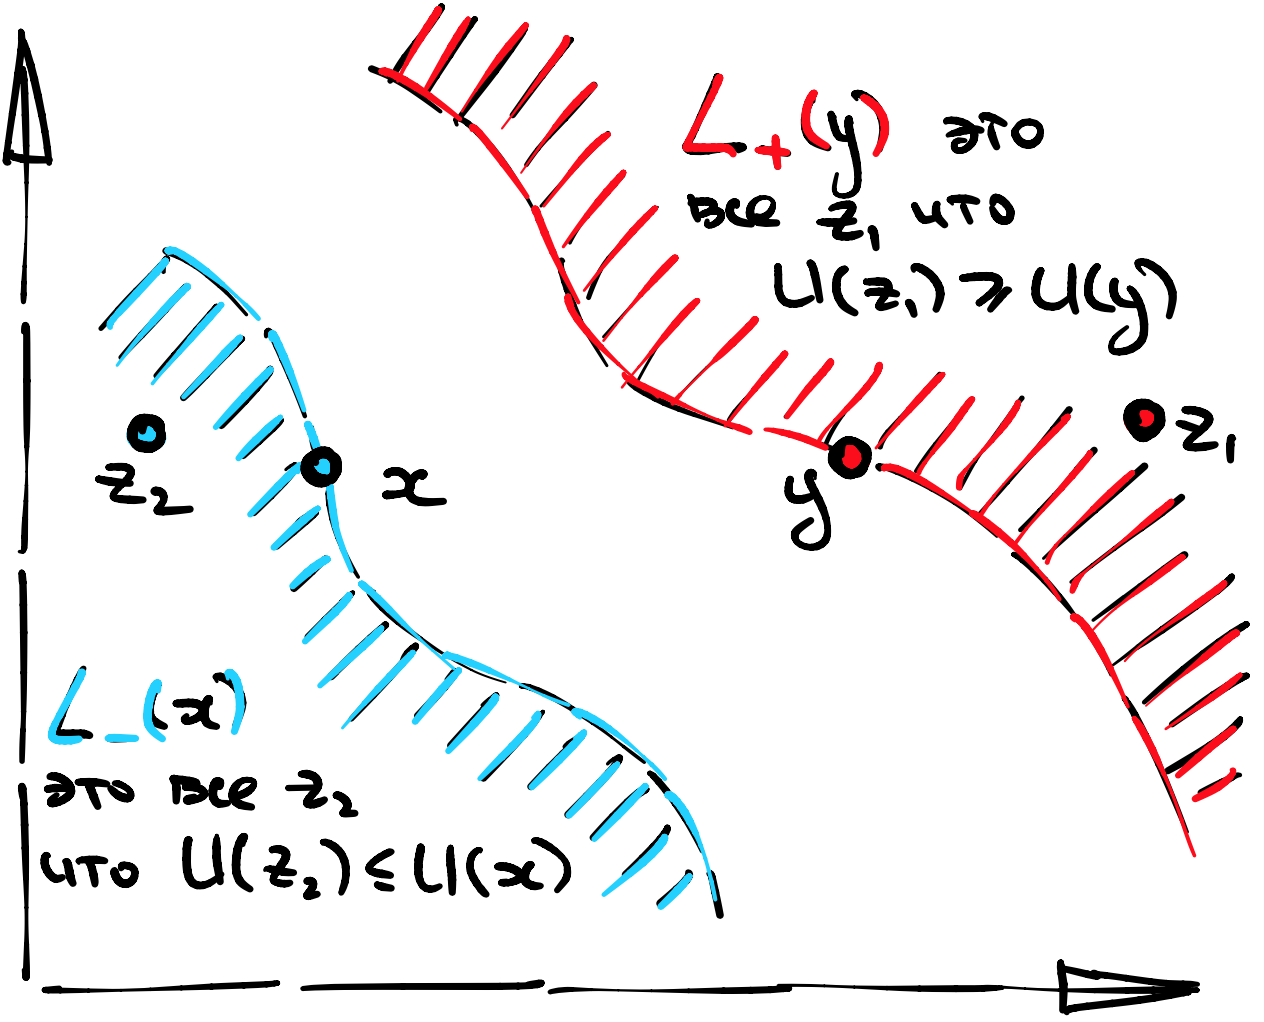 L₊(y) это
все z₁ что
U(z₁) ⩾ U(y)
z₁
z₂
x
y
L₋(x)
это все z₂
что U(z₂) ≤ U(x)